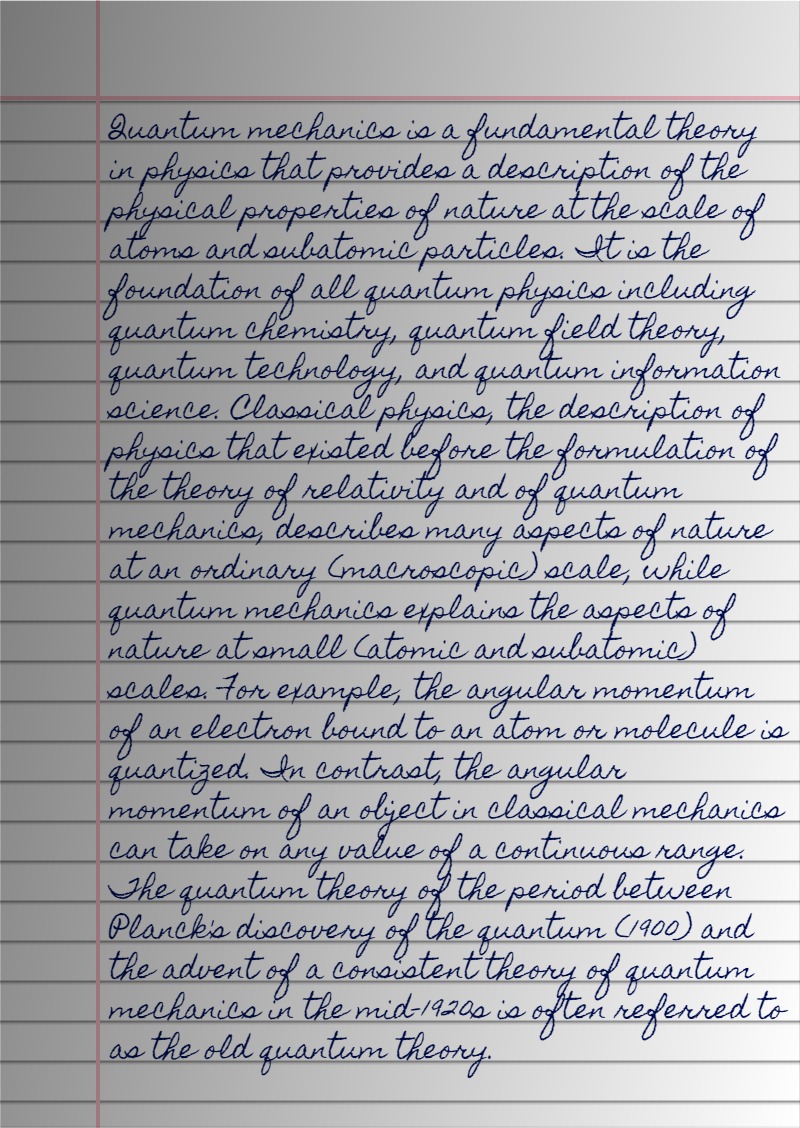 Quantum mechanics is a fundamental theory
in physics that provides a description of the
physical properties of nature at the scale of
atoms and subatomic particles. It is the
foundation of all quantum physics including
quantum chemistry, quantum field theory,
quantum technology, and quantum information
science. Classical physics, the description of
physics that existed before the formulation of
the theory of relativity and of quantum
mechanics, describes many aspects of nature
at an ordinary (macroscopic) scale, while
quantum mechanics explains the aspects of
nature at small (atomic and subatomic)
scales. For example, the angular momentum
of an electron bound to an atom or molecule is
quantized. In contrast, the angular
momentum of an object in classical mechanics
can take on any value of a continuous range.
The quantum theory of the period between
Planck's discovery of the quantum (1900) and
the advent of a consistent theory of quantum
mechanics in the mid-1920s is often referred to
as the old quantum theory.